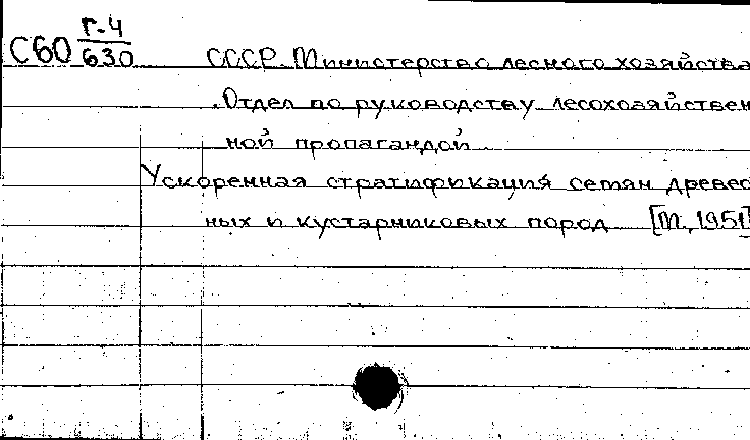 С60 Г-4
630
СССР. Министерство лесного хозяйства
. Отдел по руководству лесохозяйствен
ной пропагандой
Ускоренная стратификация семян древес
ных и кустарниковых пород [М., 1951]